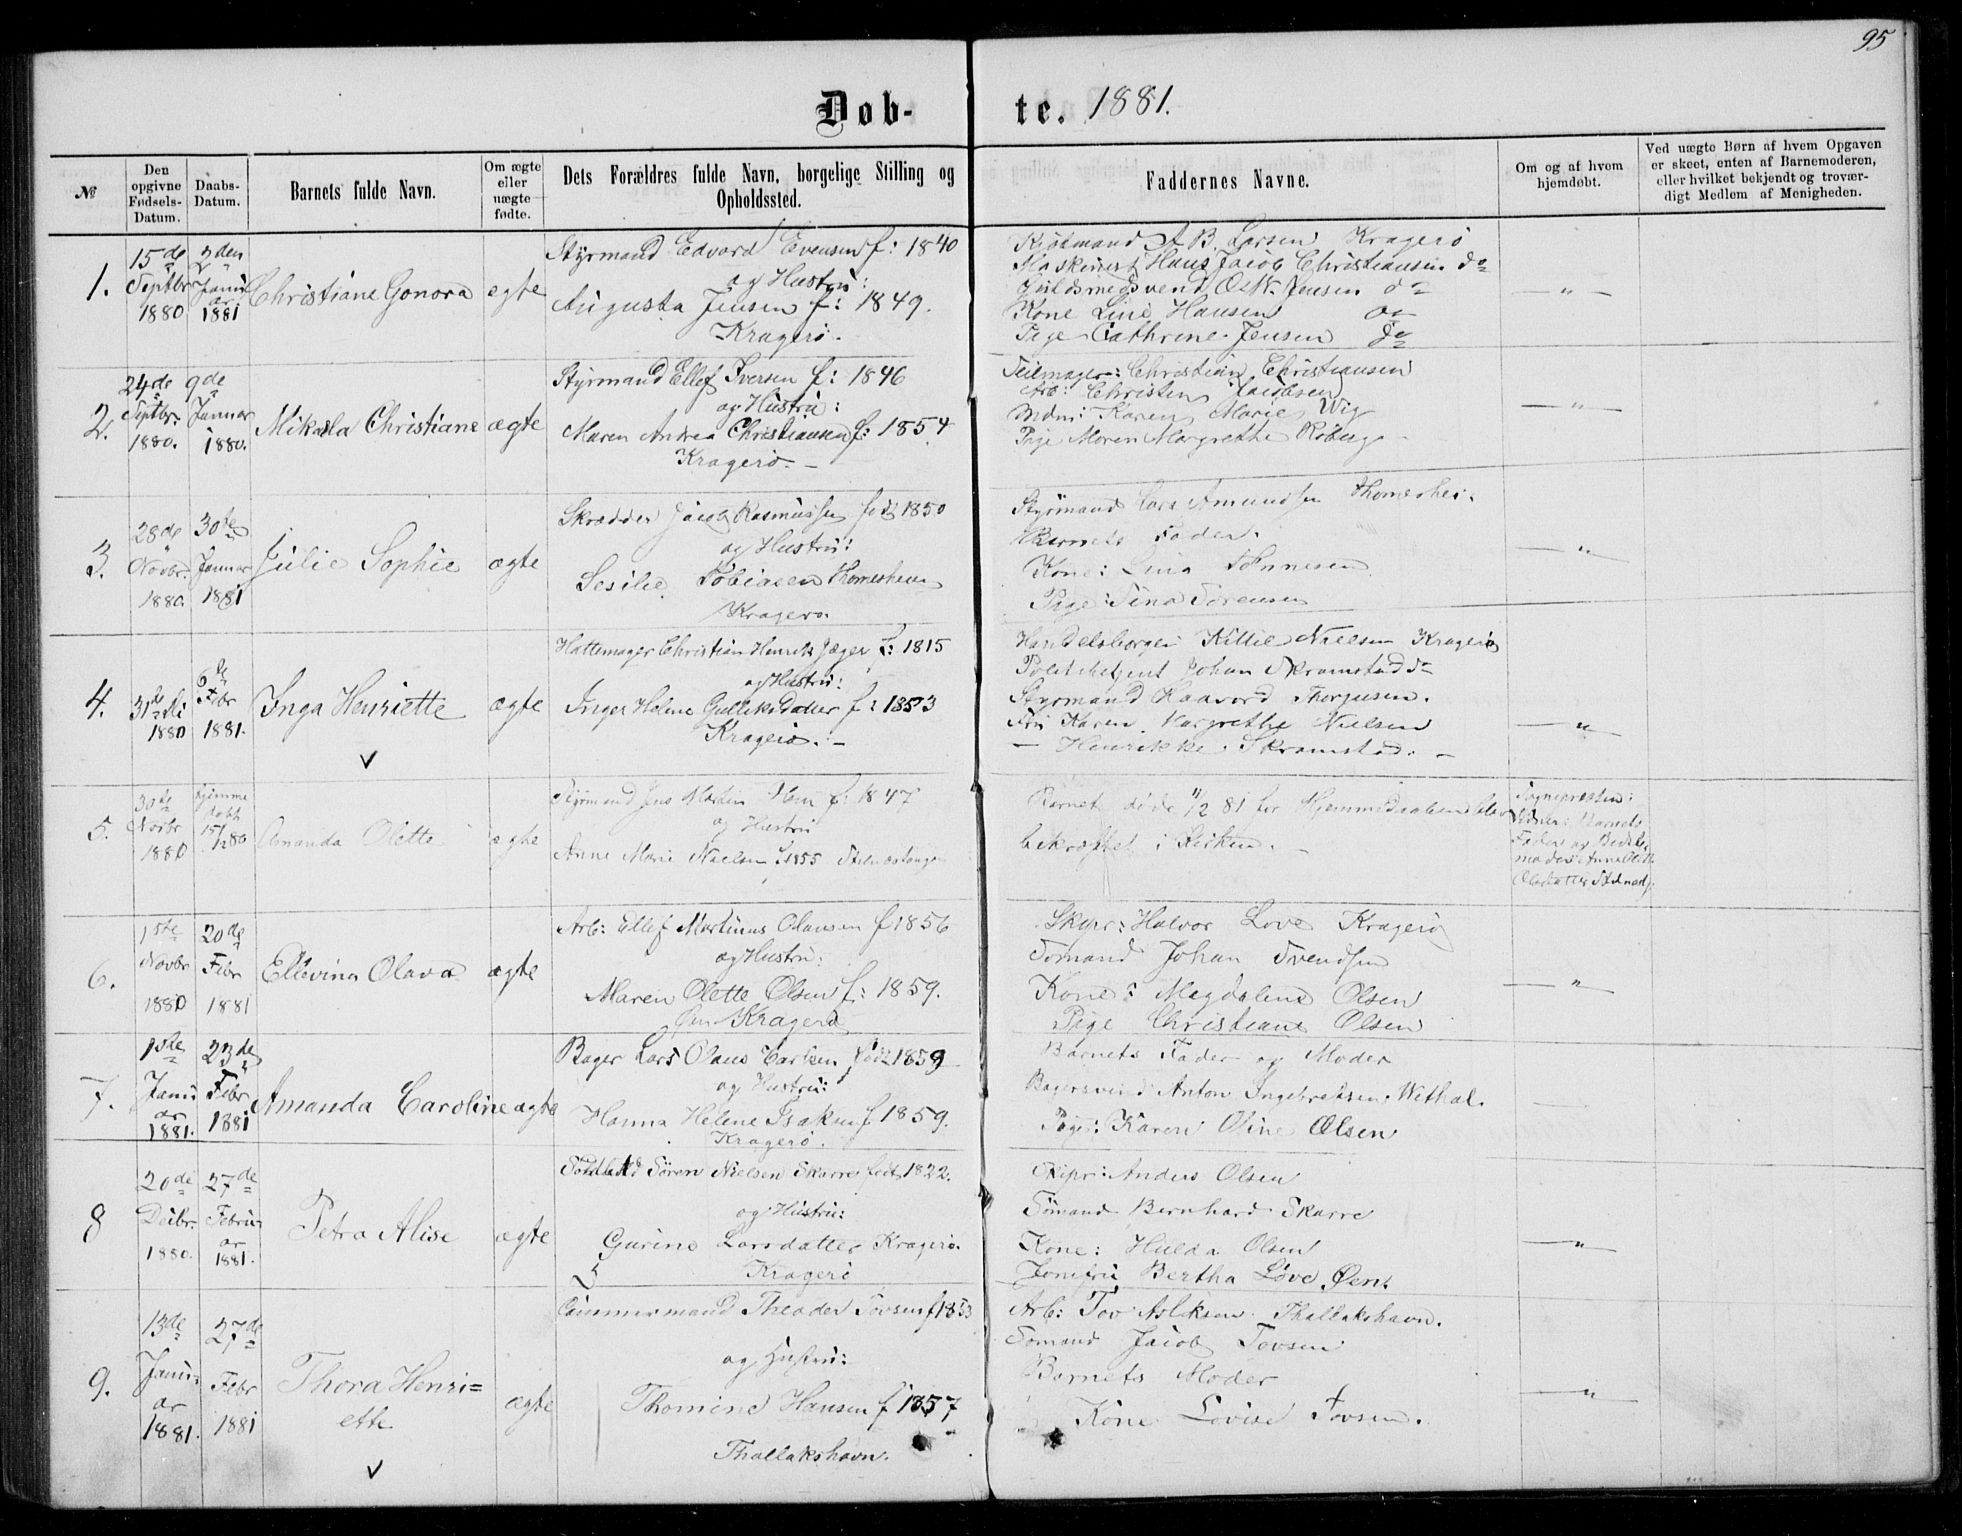 95
Døb- te. 1881.
№
Den opgivne Fødsels-Datum.
Daabs-Datum.
Barnets fulde Navn.
Om ægte eller uægte fødte.
Dets Forældres fulde Navn, borgelige Stilling og Opholdssted.
Faddernes Navne.
Om og af hvem hjemdøbt.
Ved uægte Børn af hvem Opgaven er skeet, enten af Barnemoderen, eller hvilket bekjendt og troværdigt Medlem af Menigheden.
1.
15de Septbr 1880
2den Januar 1881
Christiane Gonora
ægte
Styrmand Edvard Evensen f: 1840
og Hustru:
Augusta Jensen f: 1849.
Kragerö.
Kjötmand A B. Larsen Kragerö
Maskinist Hans Jacob Christiansen do
Guldsmedsvend Osk. Jensen do
Kone Line Hansen do
Pige Cathrine Jensen do
— " —
2.
24de Septbr. 1880.
9de Januar 1880.
Mikala Christiane
ægte
Styrmand Ellef Iversen f: 1846
og Hustru:
Maren Andrea Christiansen f: 1854
Kragerö. —
Seilmager: Christian Christiansen
Arb: Christen Jacobsen
Mdm: Karen Marie Wig
Pige Maren Margrethe
— " —
3.
28de Novbr. 1880.
30te Januar 1881
Julie Sophie
ægte
Skrædder Jacob Rasmussen född 1850
og Hustru:
Sesilie Tobiasen
Kragerö
Styrmand Lars Amundsen
Barnets Fader.
Kone: Lina Tönnesen
Pige: Sina Sörensen
— " —
4.
31te 1880
6te Febr 1881.
Inga Henriette
ægte
Hattemager Christian Henrik Jæger f: 1815
og Hustru:
Inger Helene Gulliksdatter f: 1853
Kragerö. —
Handelsborger Kittil Nielsen Kragerö
Politibetjent Johan Skramstad do
Styrmand Haavard Thorjusen.
Fru Karen Margrethe Nielsen
— Henrikke Skramstad. —
— " —
V
5.
30te Novbr 1880
Hjemme döbt 15/12 80
Amanda Olette
ægte
Styrmand Jens Martin f: 1847
og Hustru
Anne Marie Nielsen f. 1855
Barnet döde 11/2 81 för Hjemmedaaben blev
bekræftet i Kirken. —
Sognepresten:
Vidner: Barnets
Fader og
moder Anne
6.
1ste Novbr 1880
20de Febr 1881
Ellevina Olava
ægte
Arb: Ellef Martinus Olausen f 1856
og Hustru:
Maren Olette Olsen f: 1859.
Öen Kragerö
Skpr: Halvor Love Kragerö
Sömand Johan Svendsen
Kone: Magdalene Olsen
Pige Christiane Olsen
— " —
7.
1ste Januar 1881.
23de Febr 1881
Amanda Caroline
ægte
Bager Lars Olaus Carlsen född 1859
og Hustru:
Hanna Helene Isaksen f 1859.
Kragerö.
Barnets Fader og Moder
Bagersvend Anton Ingebretsen. Withal.
Pige: Karen Oline Olsen
—
8
20de Decbr. 1880.
27de Februar 1881.
Petra Alise
ægte
Sören Nielsen Skarre född 1822.
og Hustru:
Gurine Larsdatter Kragerö.
Kragerö
Skipr: Anders Olsen
Sömand Bernhard Skarre
Kone: Hulda Olsen
Jomfru Bertha Löve Öen.
— " —
9.
13de Januar 1881.
27de Febr 1881
Thora Henri=
ette
ægte
Tømmermand Theodor Tovsen f 1853
og Hustru:
Thomine Hansen f 1857
Thallakshavn.
Arb: Tov Aslksen Thallakshavn.
Sömand Jacob Tovsen
Barnets Moder
Kone Lovise Tovsen.
— " —
V